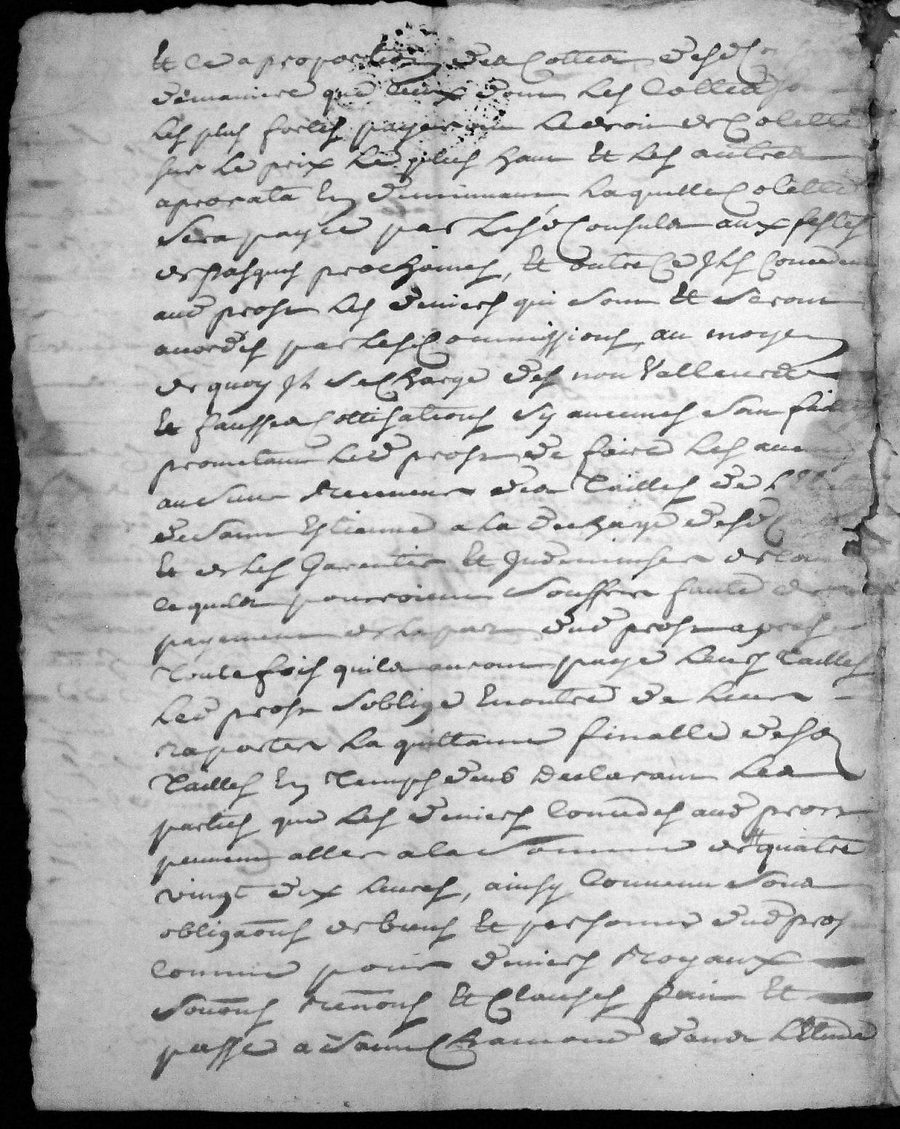 Et ce a proportion des Cottes desd
de maniere que ceux dont les Cottes
les plus fortes payeront le droit de Colette
sur le prix le plus haut Et les autres
a prorata En diminuant, laquelle Colette
Sera payée par lesd Consuls aux festes
de Pasques prochaines, Et outre Ce Ils Concedent
aud prost les deniers qui sont Et seront
accordés par les Commissions, au moyen
de quoy Il se Charge des non Valleurs
Et fausses Cottisations sy aucunes sont
prometant led prost de faire les
au sieur Receveur des Tailles de
de Saint Estienne a la decharge desd
Et de les Garentir Et Indemniser de
lequels pourroient Souffrir faute de
payement de la part dud prost apres
Toutefois quils auront payé leurs Tailles
Led prost s'oblige En outre de leur
raporter la quittance finalle desd
Tailles En Temps deub Declarant les
parties que les deniers Concedes aud prost
peuvent aller a la Somme de quatre
vingt dix livres, ainsy Convenu sous
obligaons de biens Et personne dud pros
comme pour deniers Royaux
Soumons Renons Et Clauses fait Et
passé a Saint Chamond dans L'Etude